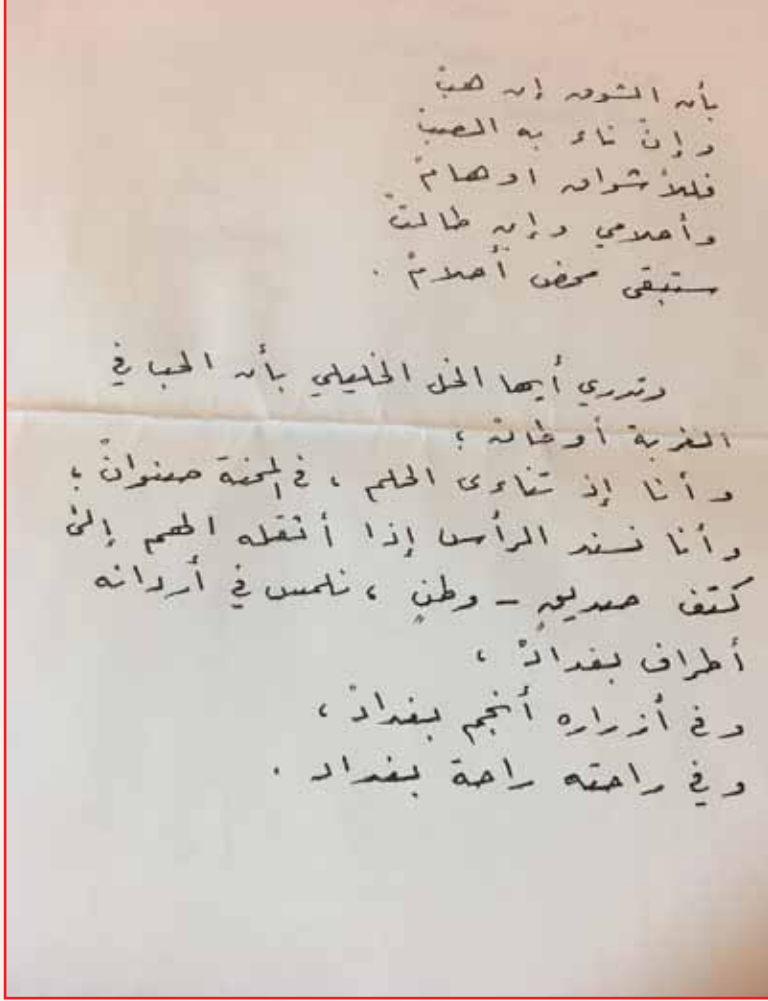 بأن الشوق إن هبّ
وإنْ ناء به الصبّ
فللأشواق اوهامْ
وأحلامي وإن طالتْ
ستبقى محض أحلامْ .
وتدري أيها الخل الخليلي بأن الحب في
الغربة أوطانْ ؛
وأنا إذ تناءى الحلم ، في المحنة صنوانْ ؛
وأنا نسند الرأس إذا أثقله الهم إلى
كتف صديقٍ - وطنٍ ، نلمس في أردانه
أطراف بغدادْ ،
وفي أزراره أنجم بغدادْ ،
وفي راحته راحة بغداد .